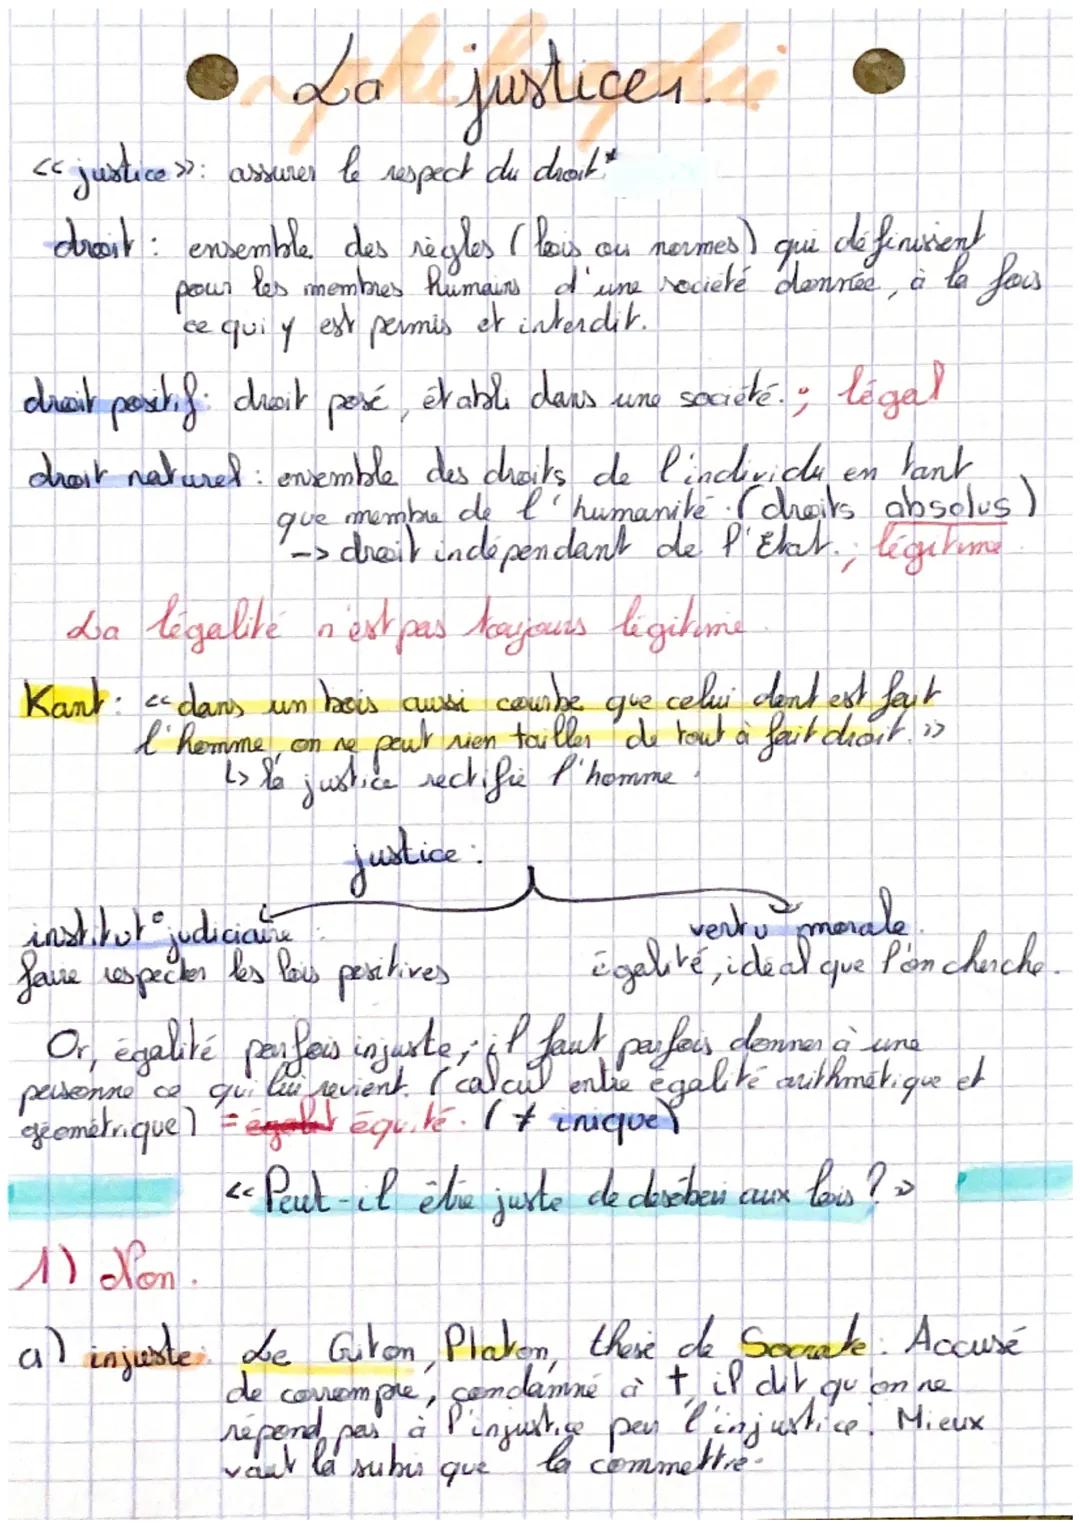 philosophie
La justice 1.
<< justice >> : assurer le respect du droit*
droit : ensemble des règles ( lois ou normes ) qui définissent
pour les membres humains d'une société donnée, à la fois
ce qui y est permis et interdit.
droit positif : droit posé, établi dans une société. ; légal
droit naturel : ensemble des droits de l'individu en tant
que membre de l'humanité. ( droits absolus )
-> droit indépendant de l'Etat. ; légitime
La légalité n'est pas toujours légitime.
Kant : << dans un bois aussi courbe que celui dont est fait
l'homme, on ne peut rien tailler de tout à fait droit. >>
↳ la justice rectifie l'homme.
justice :
institut° judiciaire :
vertu morale.
faire respecter les lois positives
égalité, idéal que l'on cherche.
Or, égalité parfois injuste, il faut parfois donner à une
personne ce qui lui revient. ( calcul entre égalité arithmétique et
géométrique ) = équité. ( ≠ inique )
<< Peut-il être juste de desobeir aux lois ? >>
1) Non.
a) injuste : Le Criton, Platon, thèse de Socrate : Accusé
de corrompre, condamné à †, il dit qu'on ne
répond pas à l'injustice par l'injustice. Mieux
vaut la subir que la commettre.